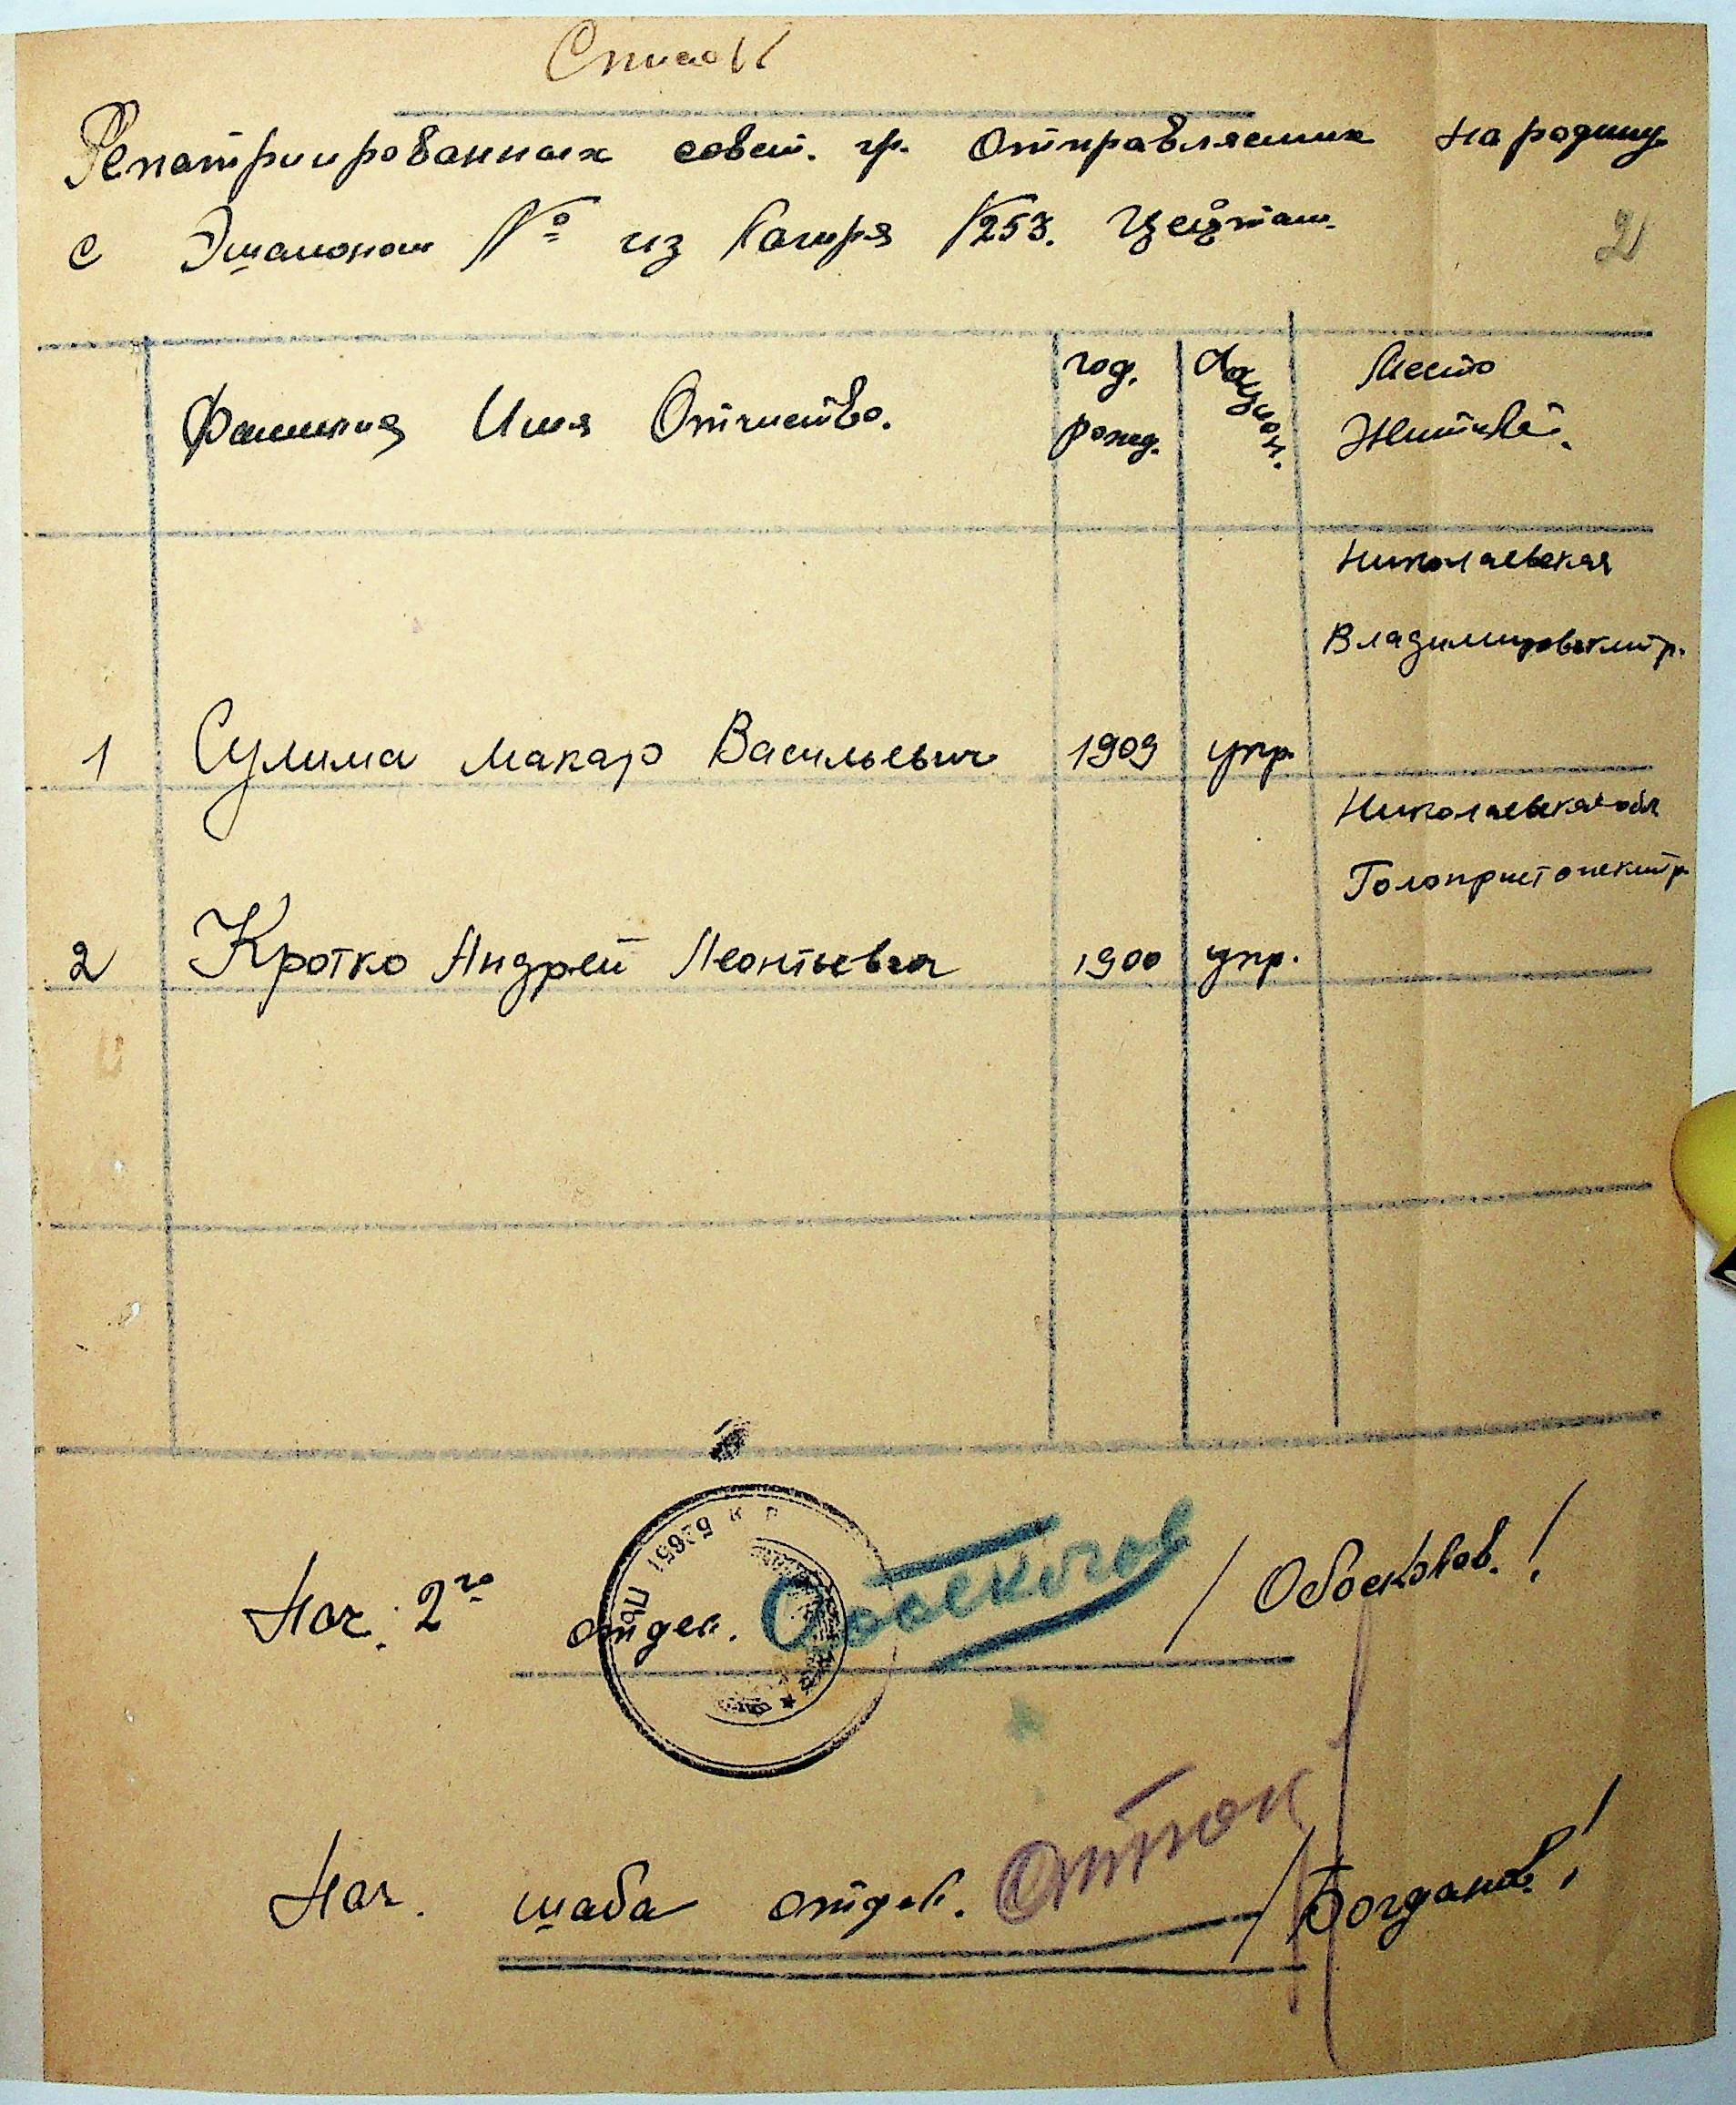 Список
Репатриированных совет. гр. Отправляемых на родину
с Эшалоном № из Лагеря №253. Цейтам.
2
Фамилия Имя Отчиство.
год. рожд.
Национ.
Место Жител.
Николаевская
Владимировский р.
1 Сулима Макар Васильевич 1909 укр.
Николаевская обл
Голопристанский р.
2 Кротко Андрей Леонтьевич 1900 укр.
Нач. 2го отдел. / Обосков. !
Нач. шаба отдел. / Богданов !